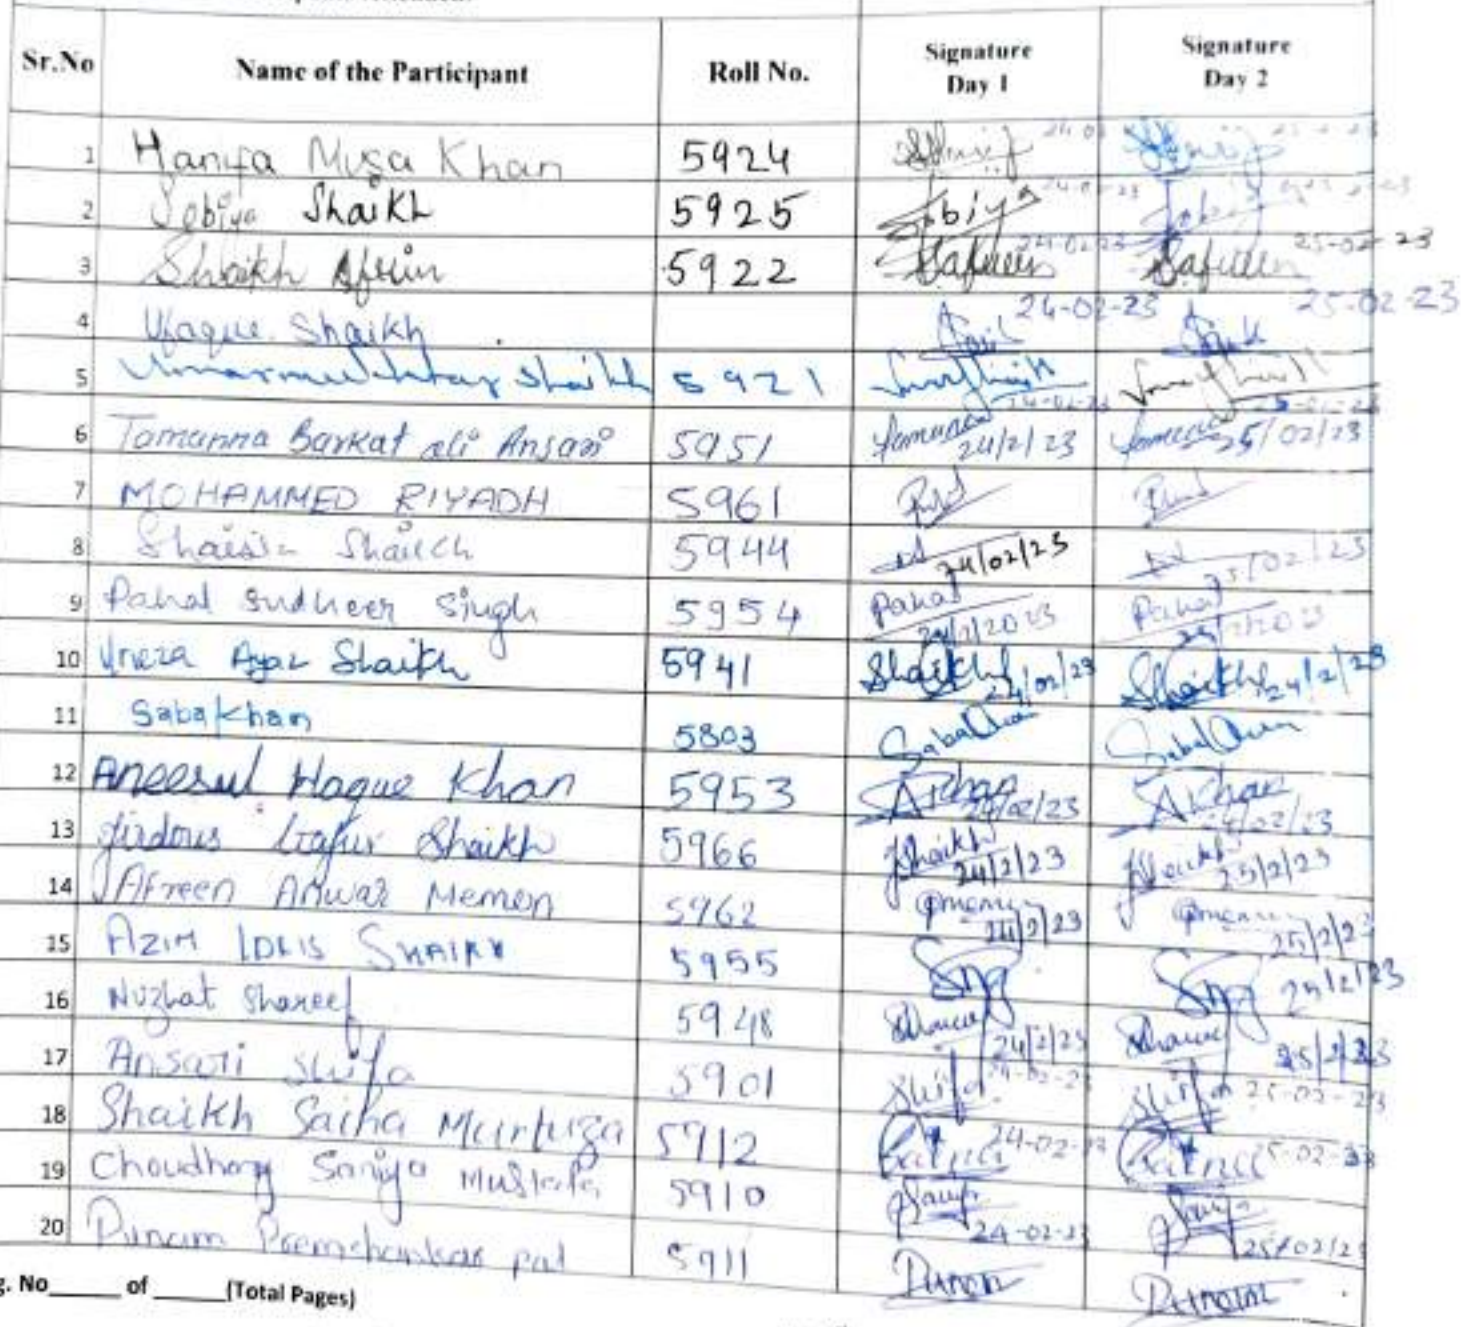 Sr.No Name of the Participant Roll No. Signature Day 1 Signature Day 2
1 Hanifa Musa Khan 5924
2 Sobiya Shaikh 5925 Sobiya 24-02-23
3 Shaikh Afrin 5922 24-02-23 25-02-23
4 Ufaque Shaikh 24-02-23 25-02-23
5 Umarmukhtar Shaikh 5921
6 Tamanna Barkat ali Ansari 5951 24/2/23 25/02/23
7 MOHAMMED RIYADH 5961
8 Shaista Shaikh 5944 24/02/23 25/02/23
9 Pahal Sudheer Singh 5954 Pahal 24/2/2023 Pahal
10 Ayaz Shaikh 5941 Shaikh 24/02/23 Shaikh 24/2/23
11 Saba Khan 5803 Saba Khan Saba Khan
12 Aneesul Haque Khan 5953 AKhan 24/02/23 AKhan 24/02/23
13 firdous Gafur Shaikh 5966 fShaikh 24/2/23 fShaikh 25/2/23
14 Afreen Anwar Memon 5962 24/2/23 25/2/23
15 AZIM IDRIS SHAIKH 5955 25/2/23
16 Nuzhat Shareef 5948 24/2/23 25/2/23
17 Ansari Shifa 5901 Shifa 24-02-23 Shifa 25-02-23
18 Shaikh Saiha Murtuza 5912 24-02-23 25-02-23
19 Choudhary Saniya Mustafa 5910 24-02-23 25/02/23
20 Punam Premshankar pal 5911 Punam Punam
g. No______ of ______(Total Pages)